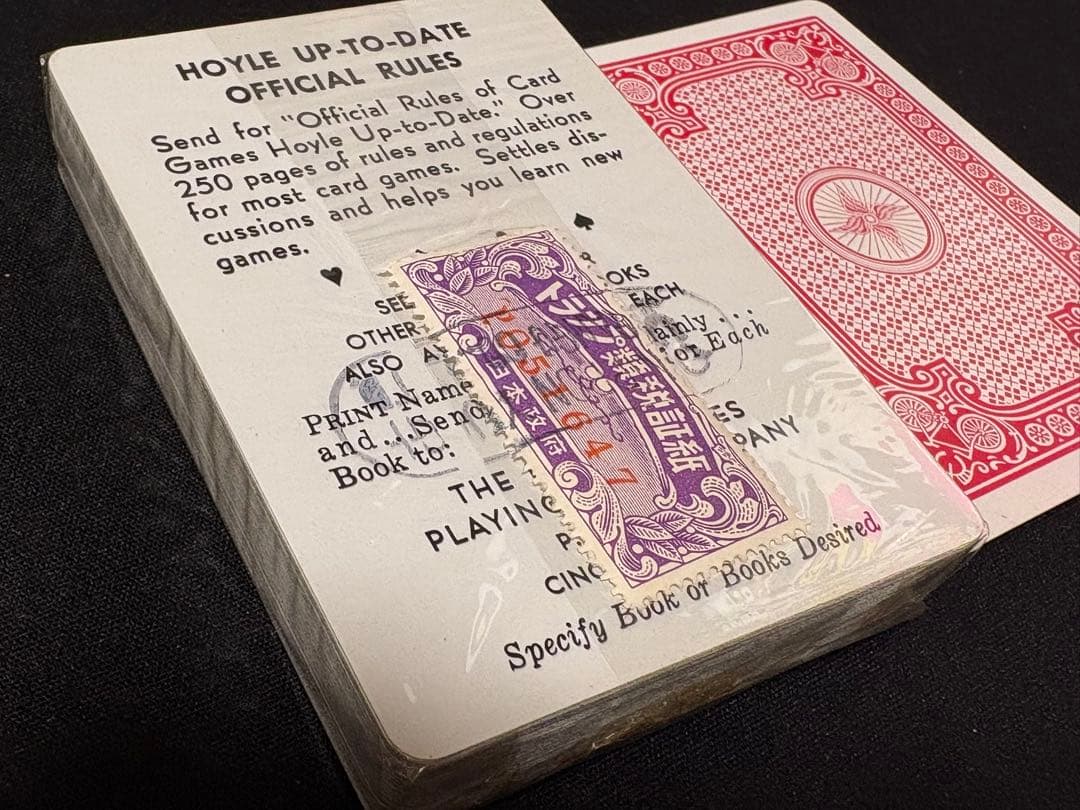 HOYLE UP-TO-DATE
OFFICIAL RULES
Send for "Official Rules of Card
Games Hoyle Up-to-Date." Over
250 pages of rules and regulations
for most card games. Settles dis-
cussions and helps you learn new
games.
♥ ♠
SEE OKS
OTHER EACH
ALSO
PRINT Name ainly ...
and ... Send or Each
Book to:
THE ES
PLAYING PANY
CINC
Specify Book or Books Desired
トランプ類税証紙
日本政府
P0531647